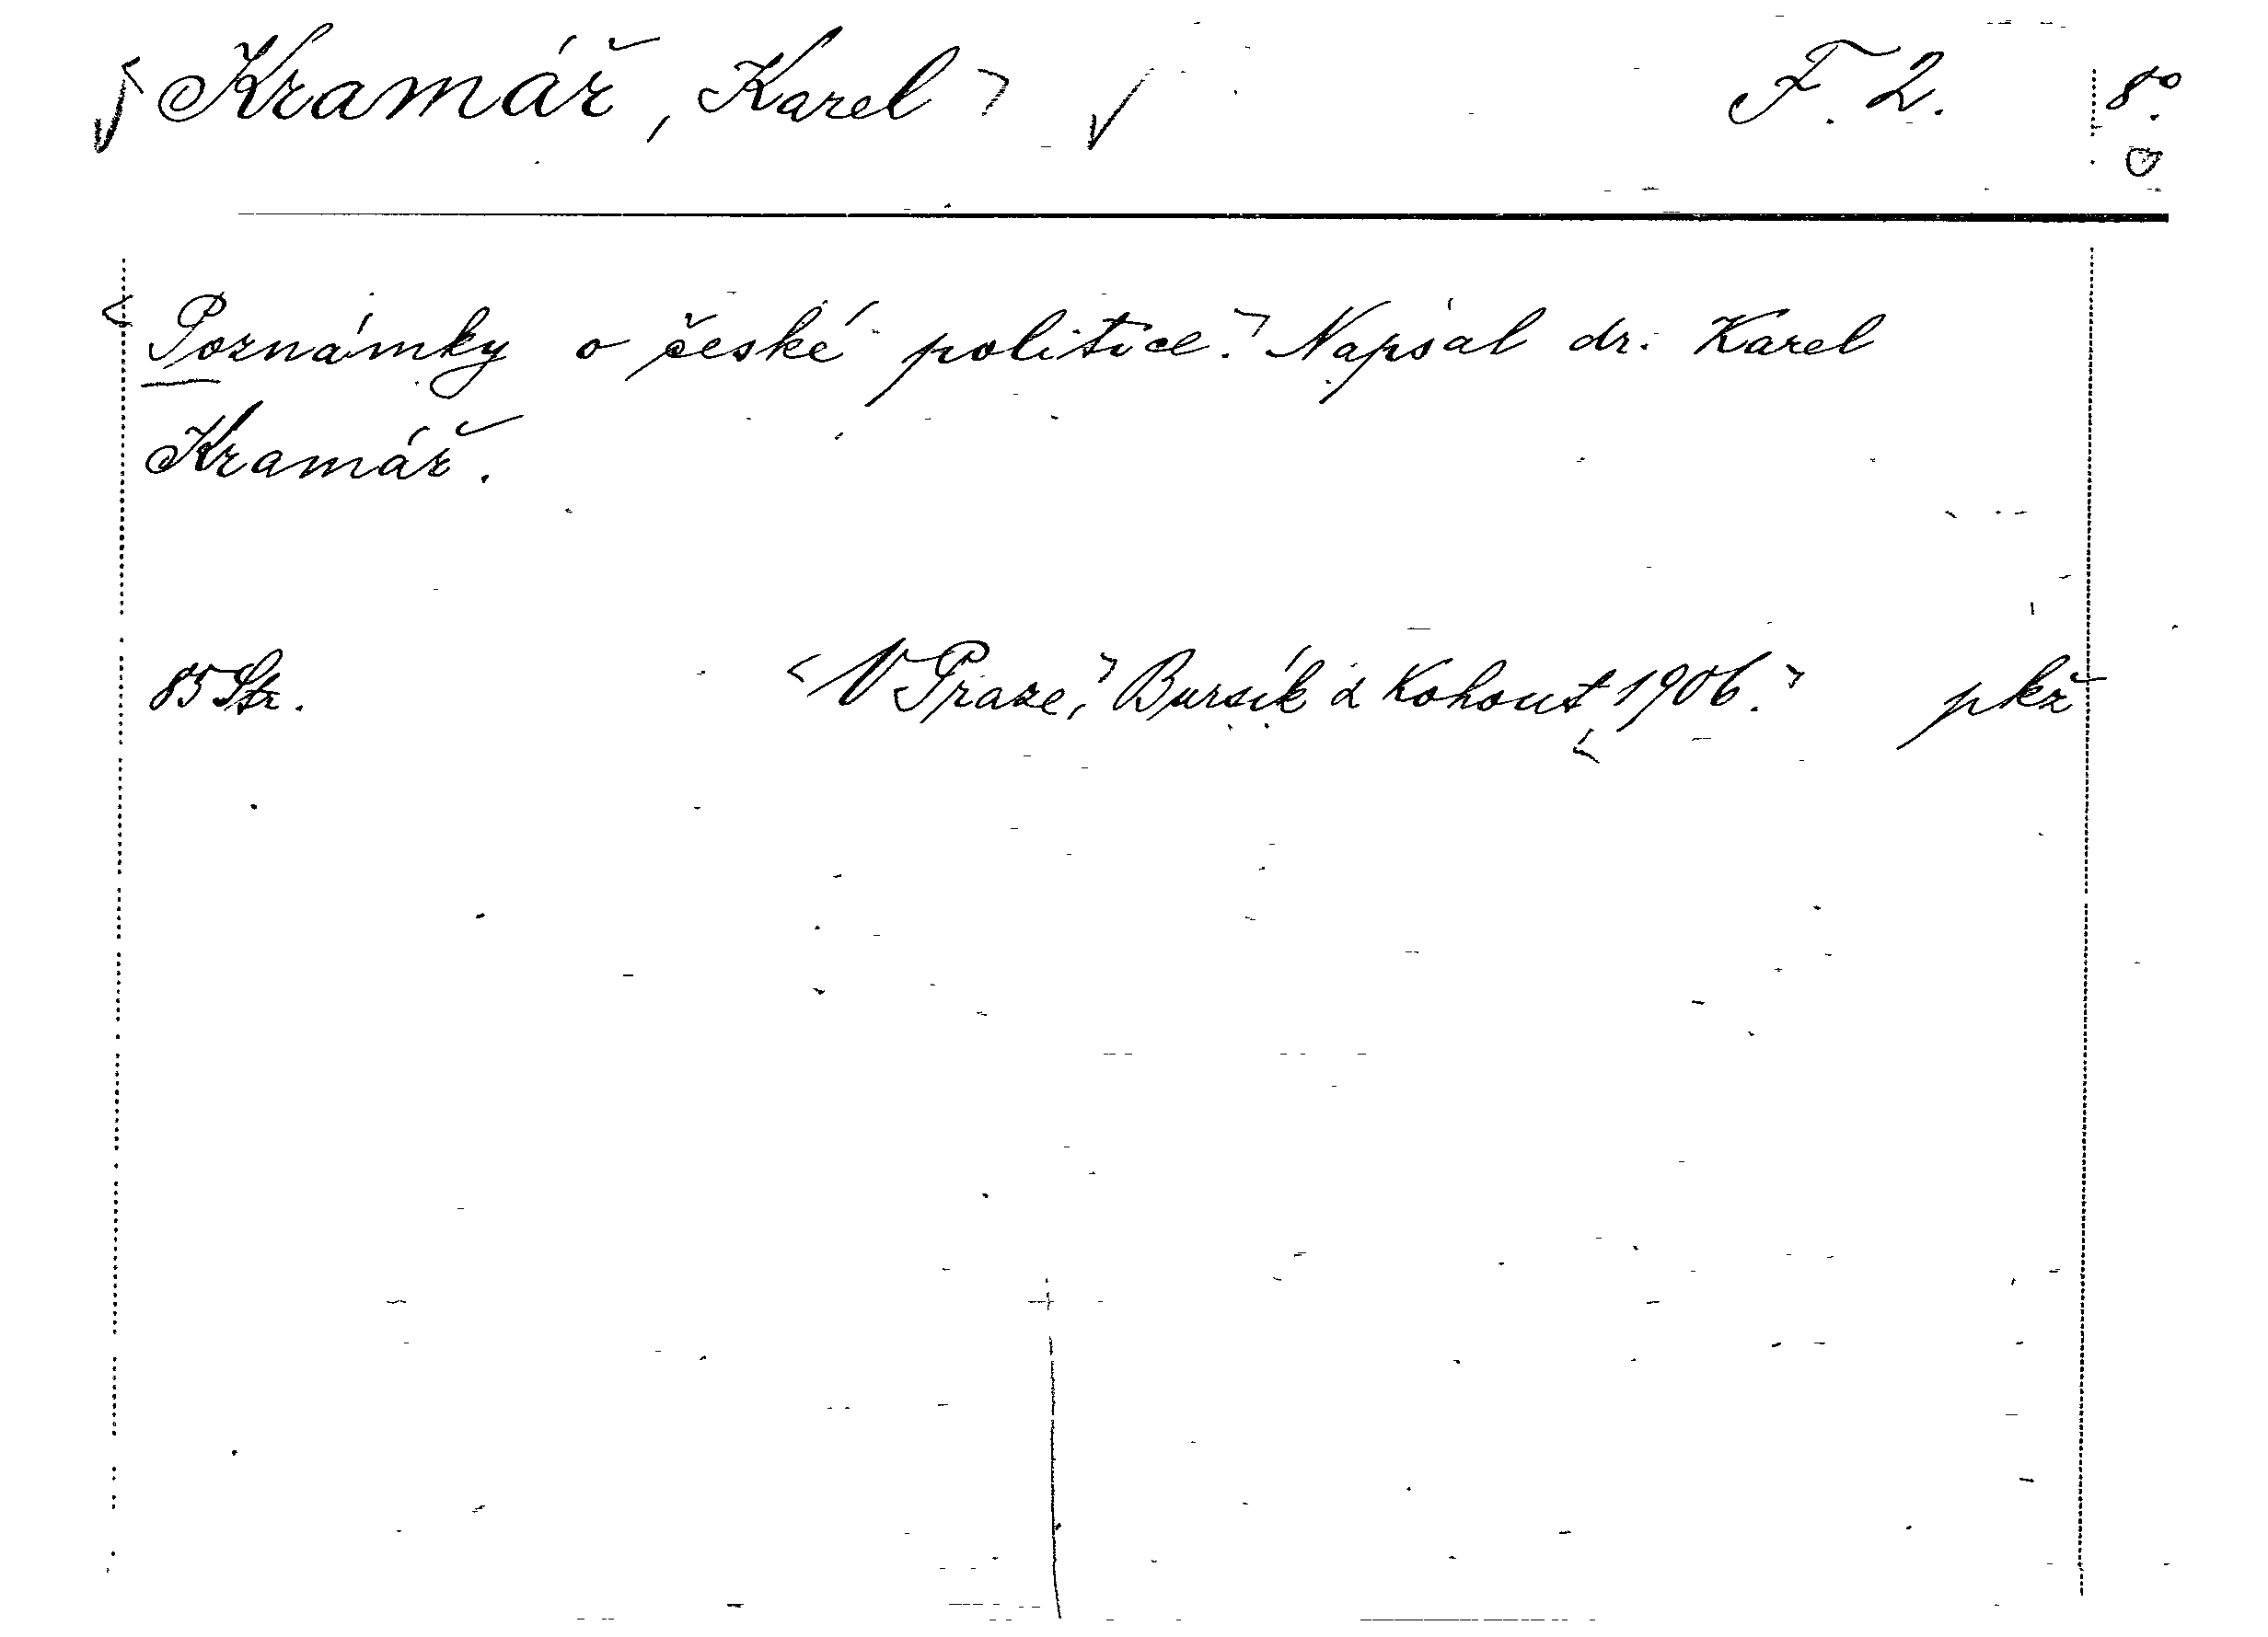 Kramář, Karel F. 2. 8°.
Poznámky o české politice. Napsal dr. Karel
Kramář.
85 Str. V Praze, Bursík & Kohout 1906. pkž